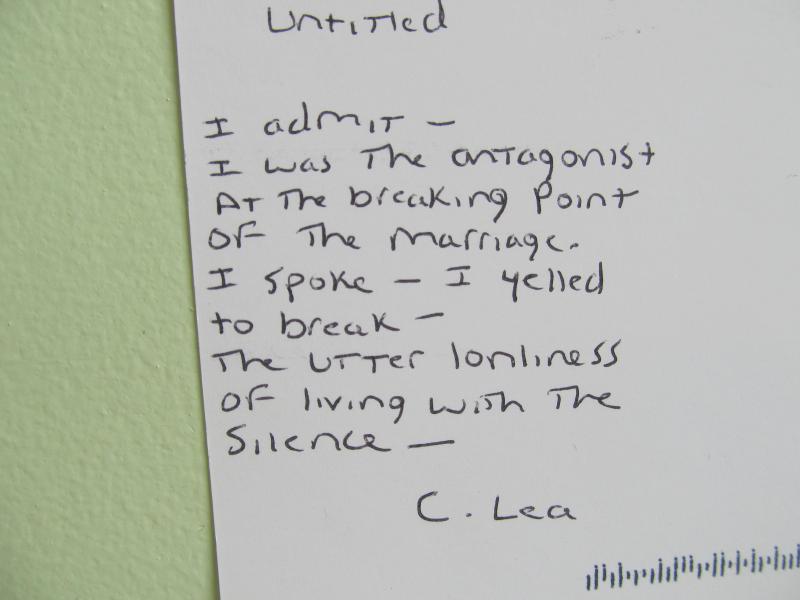 Untitled
I admit –
I was the antagonist
At the breaking point
Of the marriage.
I spoke – I yelled
to break –
The utter lonliness
Of living with the
Silence —
C. Lea